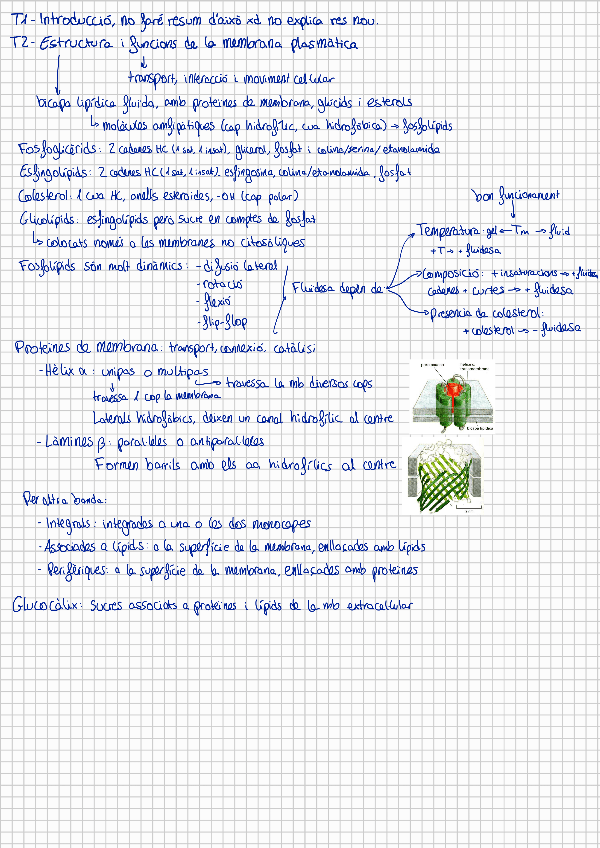 T1 - Introducció, no faré resum d'això xd. no explica res nou.
T2 - Estructura i funcions de la membrana plasmàtica
transport, interacció i moviment cel·lular
bicapa lipídica fluida, amb proteïnes de membrana, glúcids i esterols
↳ molècules amfipàtiques (cap hidrofílic, cua hidrofòbica) → fosfolípids
Fosfoglicèrids: 2 cadenes HC (1 sat, 1 insat), glicerol, fosfat i colina/serina/etanolamida
Esfingolípids: 2 cadenes HC (1 sat, 1 insat), esfingosina, colina/etanolamida, fosfat
Colesterol: 1 cua HC, anells esteroides, -OH (cap polar)
bon funcionament
Glicolípids: esfingolípids però sucre en comptes de fosfat
↳ colocats només a les membranes no citosòliques
Temperatura: gel ← Tm → fluid
+ T → + fluidesa
Fosfolípids són molt dinàmics: - difusió lateral
- rotació
- flexió
- flip-flop
Fluidesa depèn de
Composició: + insaturacions → + fluidesa
cadenes + curtes → + fluidesa
Presència de colesterol:
+ colesterol → - fluidesa
Proteïnes de membrana: transport, connexió, catàlisi
- Hèlix α: unipas o multipas
→ travessa la mb diversos cops
travessa 1 cop la membrana
Laterals hidrofòbics, deixen un canal hidrofílic al centre
- Làmines β: paral·leles o antiparal·leles
Formen barrils amb els aa hidrofílics al centre
Per altra banda:
- Integrals: integrades a una o les dos monocapes
- Associades a lípids: a la superfície de la membrana, enllaçades amb lípids
- Perifèriques: a la superfície de la membrana, enllaçades amb proteïnes
Glucocàlix: Sucres associats a proteïnes i lípids de la mb extracel·lular